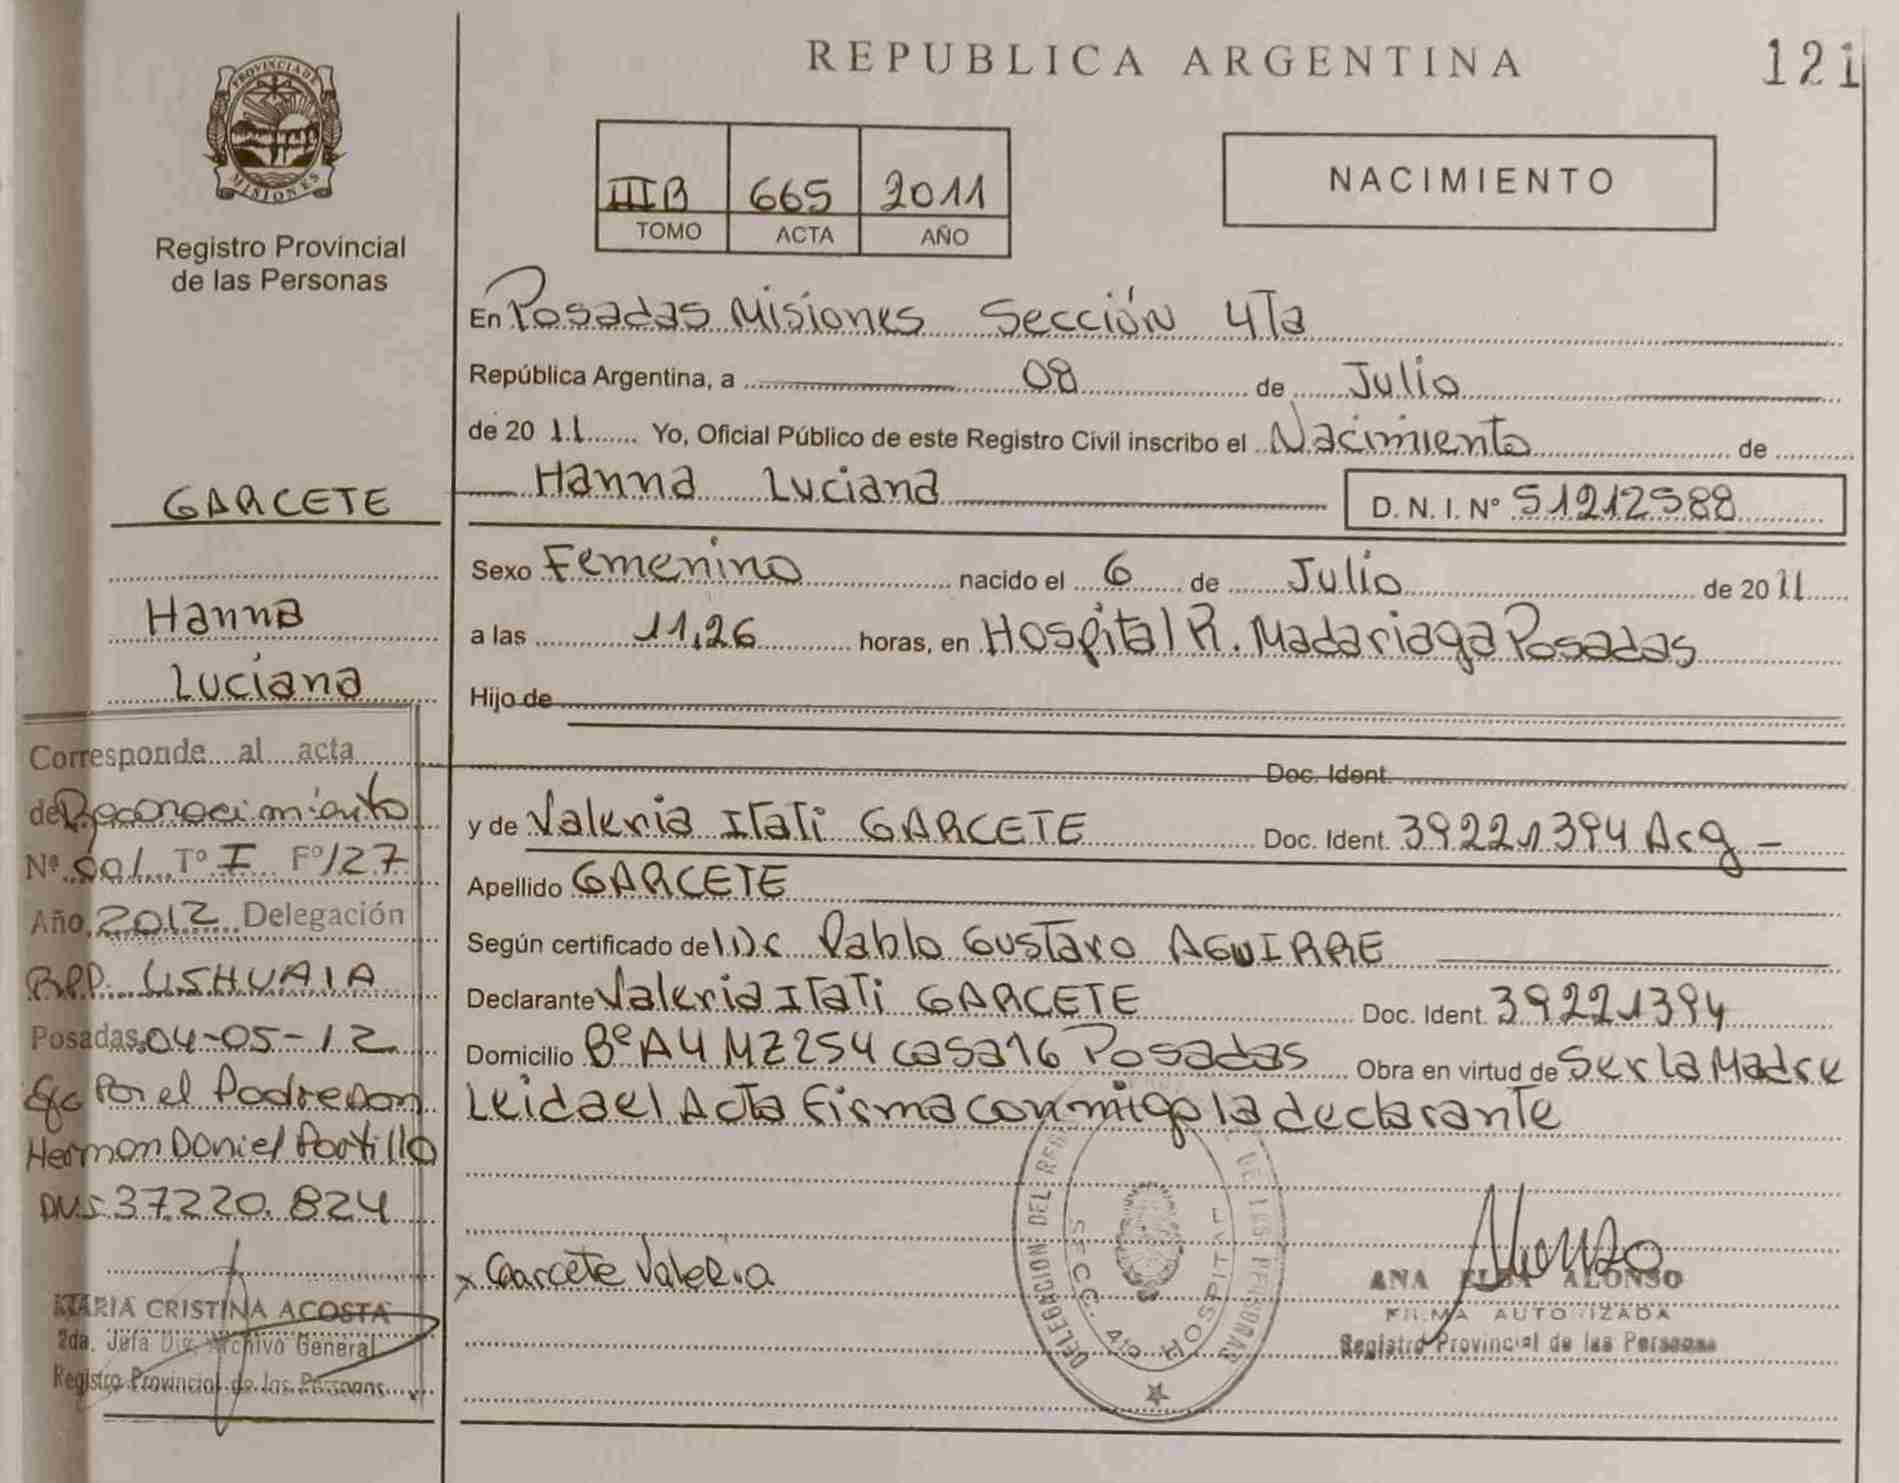 REPUBLICA ARGENTINA
121
PROVINCIA DE
MISIONES
Registro Provincial
de las Personas
IIIB 665 2011
TOMO ACTA AÑO
NACIMIENTO
En Posadas Misiones Sección 4Ta
República Argentina, a 08 de Julio
de 20 11 Yo, Oficial Público de este Registro Civil inscribo el Nacimiento de
Hanna Luciana D. N. I. Nº 51212588
Sexo Femenino nacido el 6 de Julio de 2011
a las 11,26 horas, en Hospital R. Madariaga Posadas
Hijo de
Doc. Ident.
y de Valeria ITaTi GARCETE Doc. Ident. 39221394 Arg -
Apellido GARCETE
Según certificado de Pablo GusTavo AGUIRRE
Declarante Valeria ITaTi GARCETE Doc. Ident. 39221394
Domicilio Bº A4 MZ254 casa16 Posadas Obra en virtud de Ser la Madre
Leida el Acta firma conmigo la declarante
x Garcete Valeria
DELEGACION DEL REGISTRO DE LAS PERSONAS
SECC. 4ta HOSPITAL
Alonso
ANA ELBA ALONSO
FIRMA AUTORIZADA
Registro Provincial de las Personas
GARCETE
Hanna
Luciana
Corresponde al acta
de Reconocimiento
Nº 001 Tº I Fº 127
Año 2012 Delegación
RPP USHUAIA
Posadas, 04-05-12
Por el Padre Don
Hernan Daniel Portillo
DNI 37.220.824
MARIA CRISTINA ACOSTA
2da. Jefa Div. Archivo General
Registro Provincial de las Personas